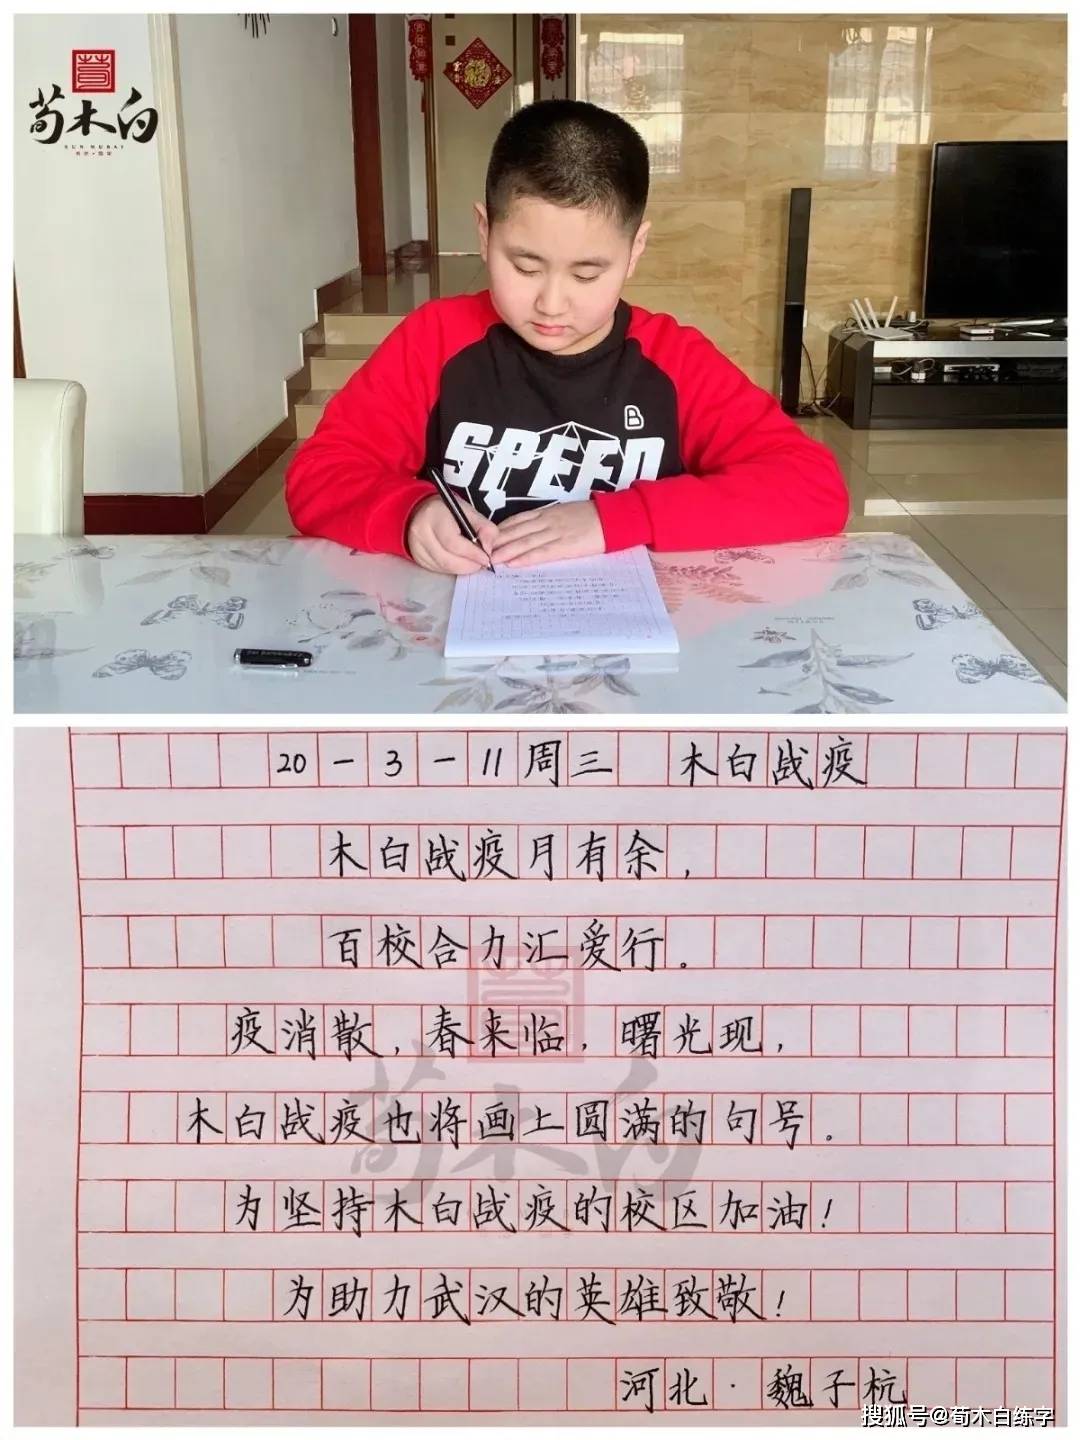 荀木白
SUN MUBAI
SPEED
B
福
20-3-11周三 木白战疫
木白战疫月有余,
百校合力汇爱行。
疫消散,春来临,曙光现,
木白战疫也将画上圆满的句号。
为坚持木白战疫的校区加油!
为助力武汉的英雄致敬!
河北·魏子杭
荀木白
搜狐号@荀木白练字